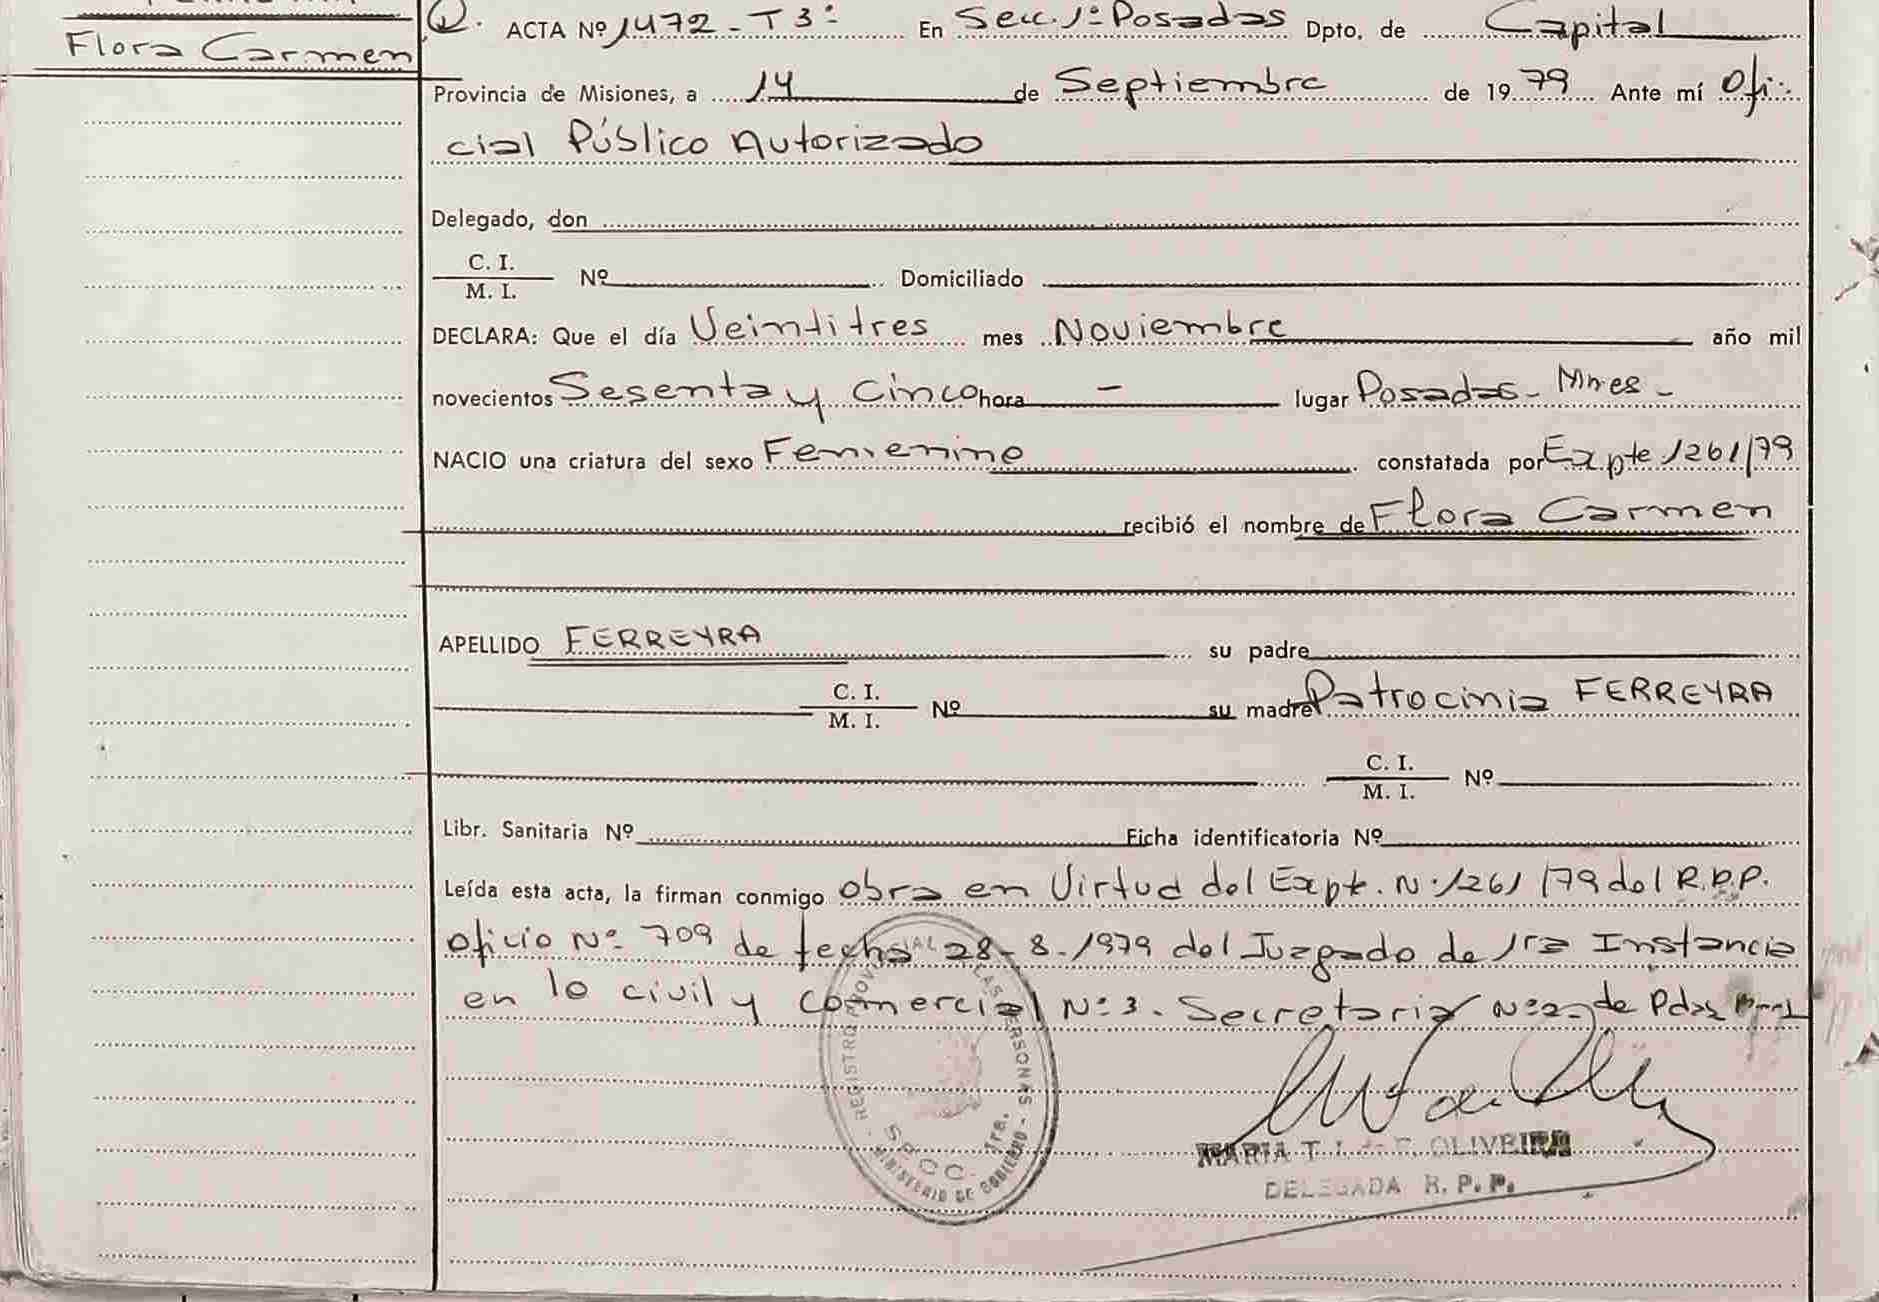 Flora Carmen
ACTA Nº 1472 - T 3º En Secc. 1º Posadas Dpto. de Capital
Provincia de Misiones, a 14 de Septiembre de 1979 Ante mí Ofi-
cial Público Autorizado
Delegado, don
C. I.
M. I. Nº Domiciliado
DECLARA: Que el día Veintitres mes Noviembre año mil
novecientos Sesenta y Cinco hora - lugar Posadas - Mnes -
NACIO una criatura del sexo Femenino constatada por Expte 1261/79
recibió el nombre de Flora Carmen
APELLIDO FERREYRA su padre
C. I.
M. I. Nº su madre Patrocinia FERREYRA
C. I.
M. I. Nº
Libr. Sanitaria Nº Ficha identificatoria Nº
Leída esta acta, la firman conmigo obra en Virtud del Expte. Nº 1261/79 del R.P.P.
oficio Nº 709 de fecha 28-8-1979 del Juzgado de 1ra Instancia
en lo civil y comercial Nº 3. Secretaria Nº 2 - de Pdas
REGISTRO PROVINCIAL DE LAS PERSONAS - MINISTERIO DE GOBIERNO -
1ra.
MARIA T. OLIVEIRA
DELEGADA R. P. P.